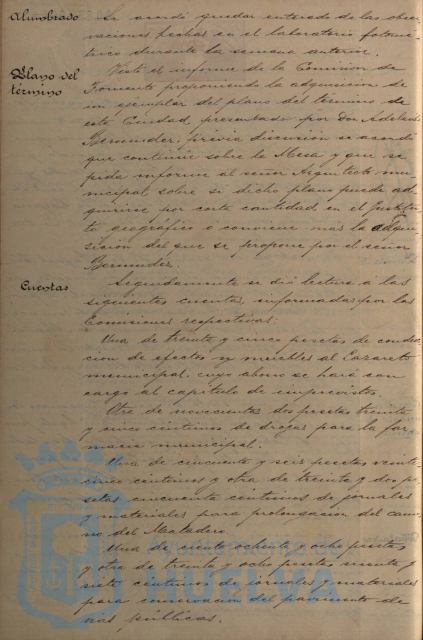 Alumbrado
Se acordó quedar enterado de las obser-
vaciones hechas en el laboratorio fotomé-
trico durante la semana anterior.
Plano del
término
Visto el informe de la Comisión de
Fomento proponiendo la adquisición de
un ejemplar del plano del término de
esta Ciudad, presentado por Don Adolfo
Bermudez, previa discusión se acordó
que continúe sobre la Mesa y que se
pida informe al señor Arquitecto mu-
nicipal sobre si dicho plano puede ad-
quirirse por corta cantidad en el Institu-
to geográfico o conviene mas la adqui-
sición del que se propone por el señor
Bermudez.
Cuentas
Seguidamente se dió lectura a las
siguientes cuentas, informadas por las
Comisiones respectivas:
Una de treinta y cinco pesetas de conduc-
ción de efectos y muebles al Lazareto
municipal, cuyo abono se hará con
cargo al capítulo de imprevistos.
Otra de novecientas dos pesetas treinta
y cinco céntimos de drogas para la far-
macia municipal.
Una de cincuenta y seis pesetas veinti-
cinco céntimos y otra de treinta y dos pe-
setas cincuenta céntimos de jornales
y materiales para prolongación del cami-
no del Matadero.
Una de ciento ochenta y ocho pesetas
y otra de treinta y ocho pesetas
siete céntimos de jornales y materiales
para conservación del pavimento de
vias públicas.
Ayuntamiento de
HUELVA